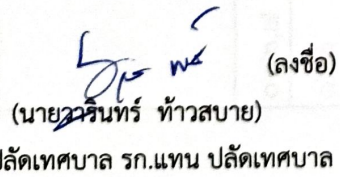 (ลงชื่อ)
(นายวารินทร์ ท้าวสบาย)
ปลัดเทศบาล รก.แทน ปลัดเทศบาล